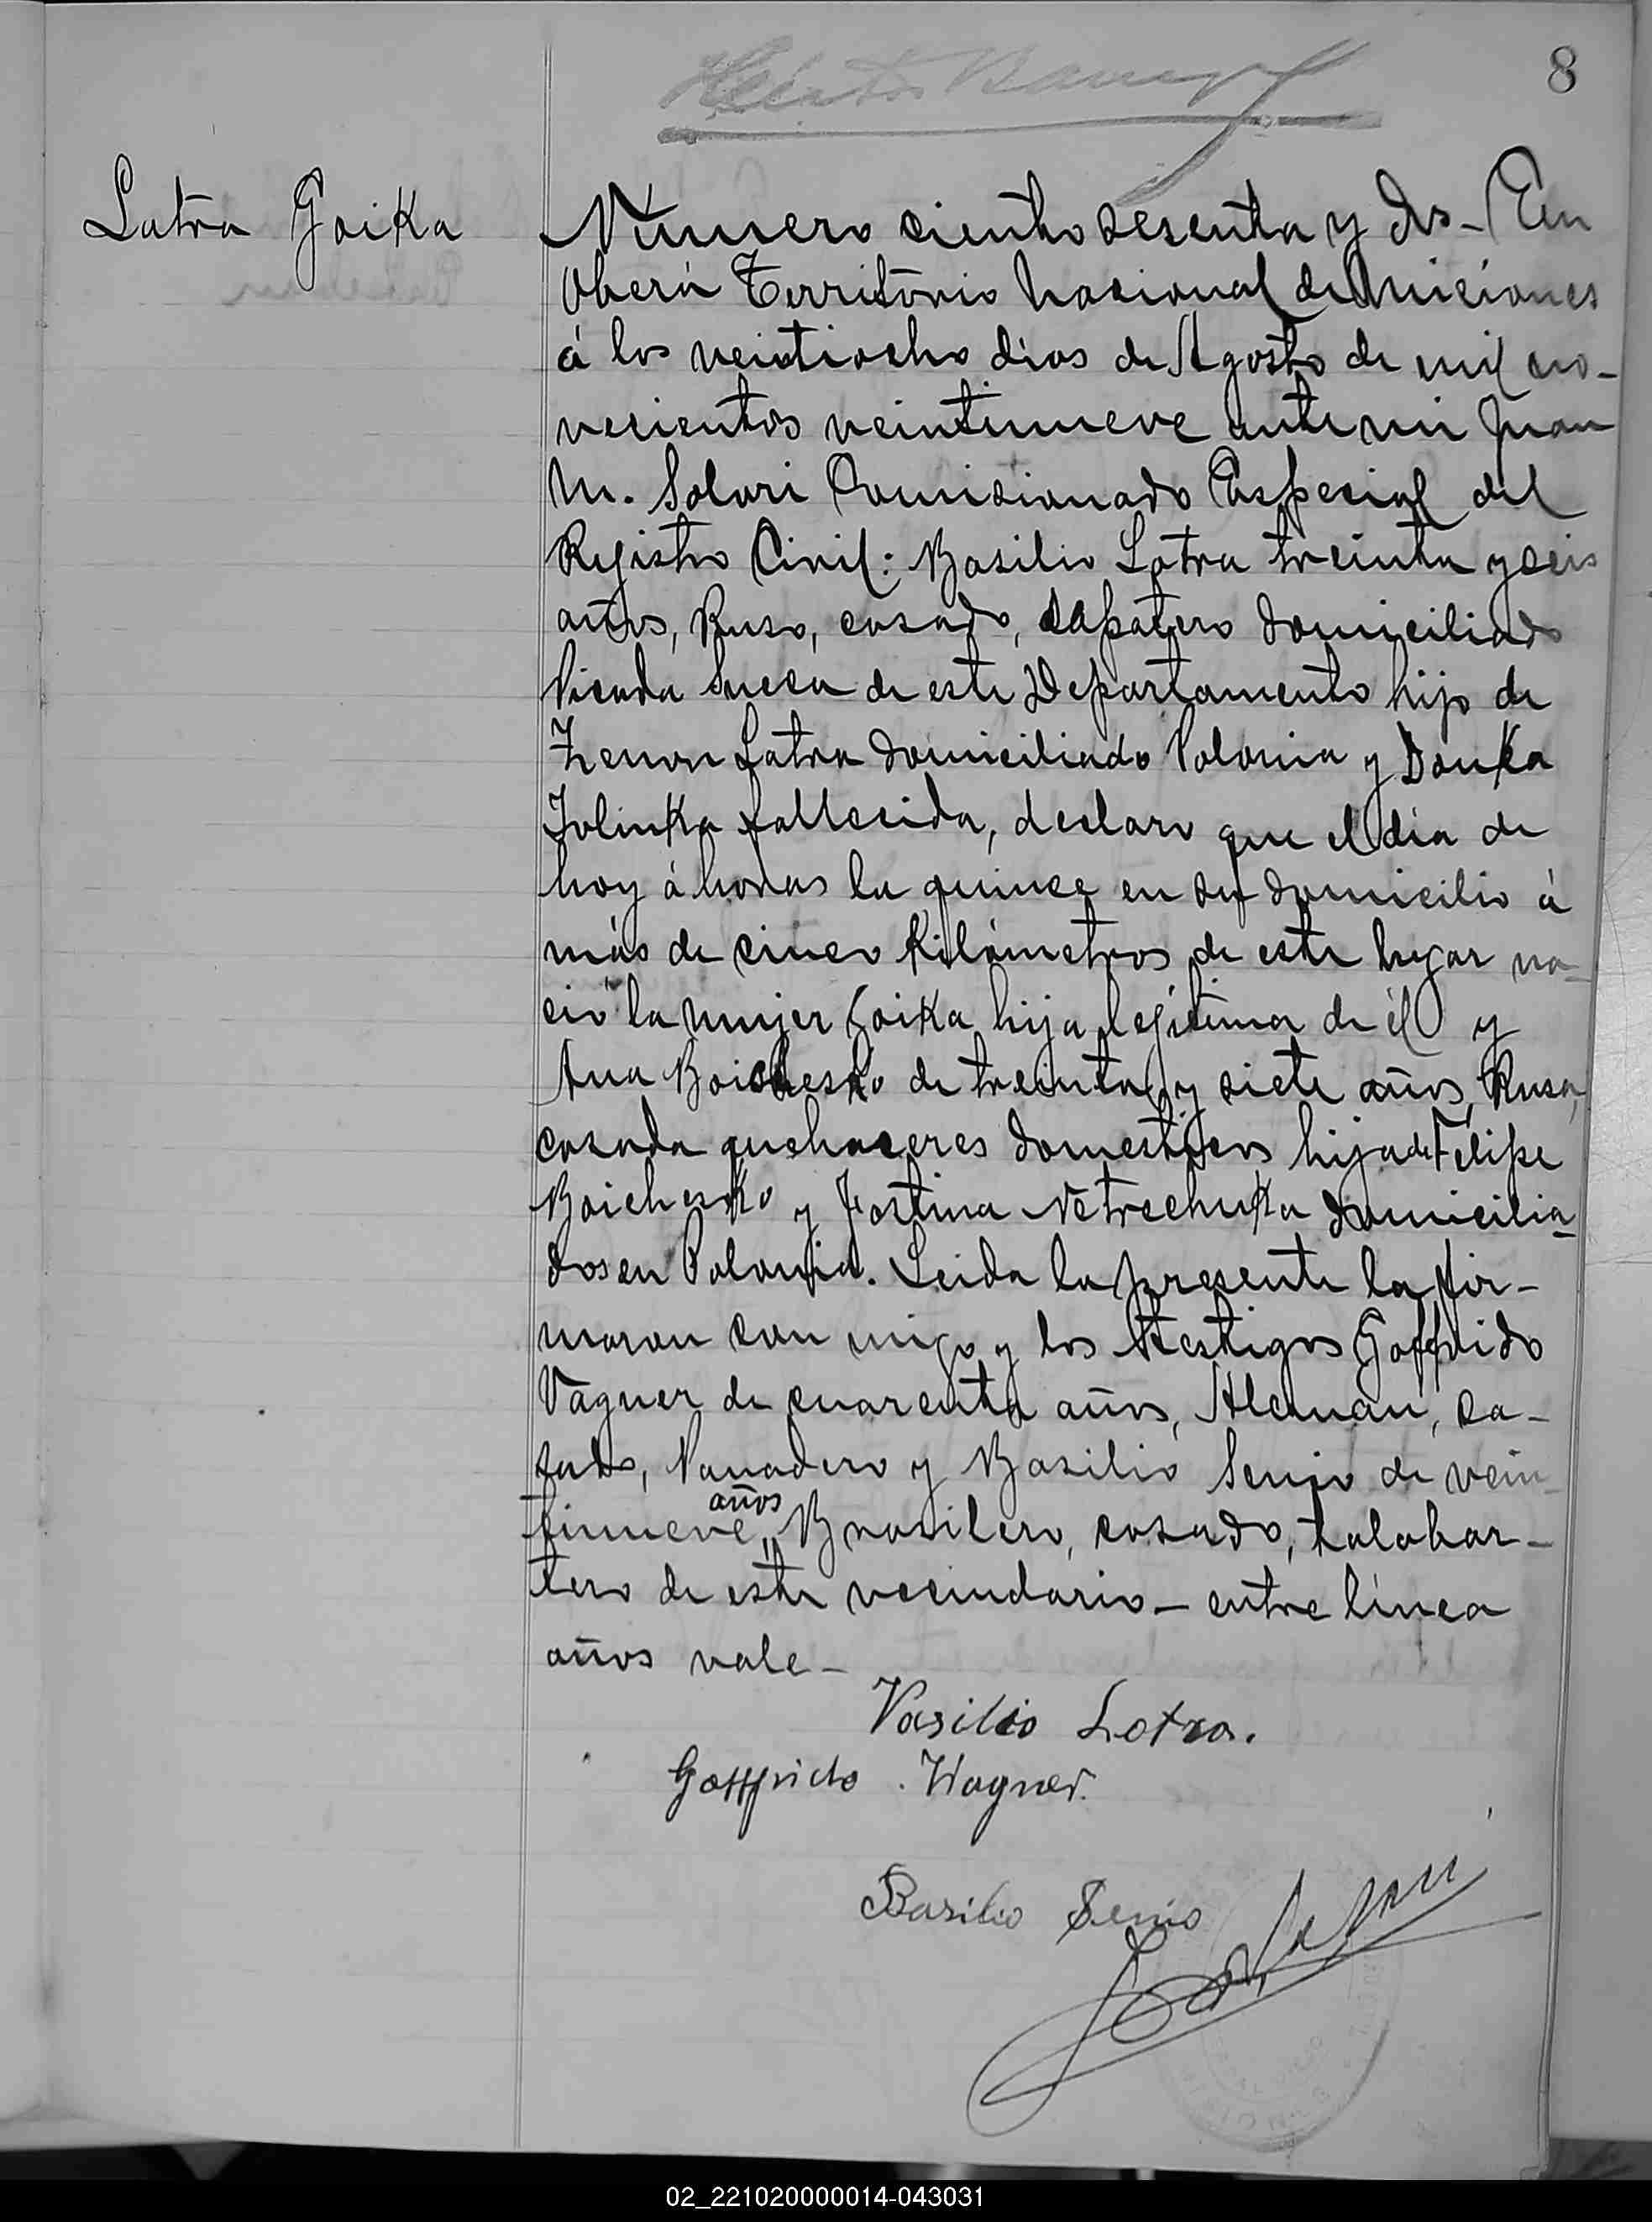 8
Latra Goika
Número ciento sesenta y dos - En
Oberá Territorio Nacional de Misiones
á los veintiocho dias de Agosto de mil no-
vecientos veintinueve ante mi Juan
M. Solari Comisionado Especial del
Registro Civil: Basilio Latra treinta y seis
años, Ruso, casado, zapatero domiciliado
Picada Sueca de este Departamento hijo de
Zenon Latra domiciliado Polonia y Douka
Zolinka fallecida, declaro que el dia de
hoy á horas la quince en su domicilio á
más de cinco Kilómetros de este lugar na-
ció la mujer Goika hija legitima de él y
Ana Boichesko de treinta y siete años, Rusa,
casada quehaceres domesticos hija de Felipe
Boichesko y Fortina Netrechuka domicilia-
dos en Polonia. Leida la presente la fir-
maron con migo y los testigos Goffrido
Vagner de cuarenta años, Aleman, ca-
sado, Panadero y Basilio Senio de vein
años
tinueve, Brasilero, casado, talabar-
tero de este vecindario - entre línea
años vale -
Vasilio Lotra.
Gottfrido . Wagner.
Basilio Senio
02_221020000014-043031